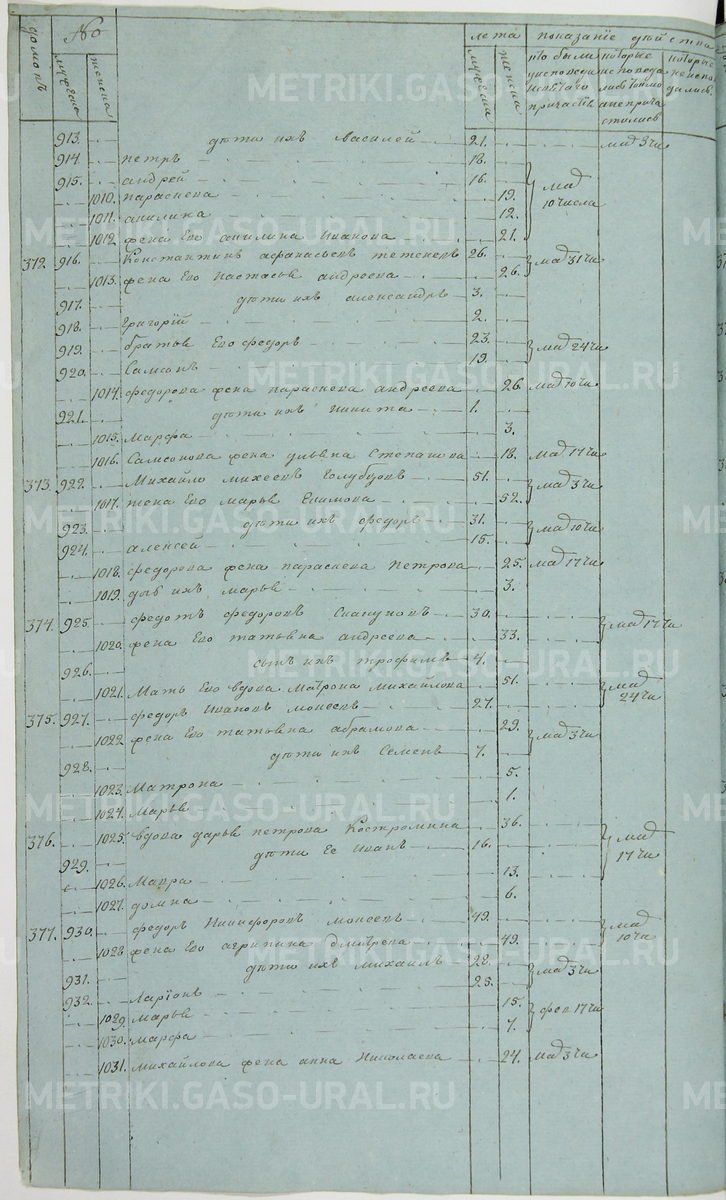 No лета показанїе действа
домовъ мужеска женска мужеска женска
913. дѣти ихъ василей 21. мар 3 чи
914 петръ 18.
915. андрей 16. мар 10 числа
1010. параскева 19.
1011. акилина 12.
1012 жена его акилина Иванова 21.
372. 916. Константинъ афанасьевъ тетеневъ 26. мар 31 чи
1013. жена его настасья андреева 26.
917. дѣти ихъ александръ 3.
918. григорїй 2.
919. братья его федоръ 23. мар 24 чи
920. Самсонъ 19.
1014. федорова жена параскева андреева 26. мар 10 чи
921. дѣти ихъ никита 1.
1015. Марфа 3.
1016. Самсонова жена ульяна Степанова 18. мар 17 чи
373. 922. Михайло михеевъ голубцовъ 51. мар 3 чи
1017. жена его марья Екимова 52.
923. дѣти ихъ федоръ 31. мар 10 чи
924. алексей 15.
1018. федорова жена параскева петрова 25. мар 17 чи
1019. дочь ихъ марья 3.
374. 925. федотъ федоровъ Скакуновъ 30. мар 17 чи
1020. жена его татьяна андреева 33.
926. сынъ ихъ трофимъ 4.
1021. Мать его вдова матрона михайлова 51. мар 24 чи
375. 927. федоръ Ивановъ моисеевъ 27.
1022. жена его татьяна абрамова 29. мар 3 чи
928. дѣти ихъ Семенъ 7.
1023. Матрона 5.
1024. Марья 1.
376. 1025. вдова дарья петрова Костромина 36. мар 17 чи
929. дѣти ее Иванъ 16.
1026. Мавра 13.
1027. домна 6.
377. 930. федоръ Никифоровъ моисеевъ 49. мар 10 чи
1028. жена его агрипина дмитрева 49.
931. дѣти ихъ михаилъ 28. мар 3 чи
932. Ларїонъ 25.
1029. марья 15. фев 17 чи
1030. марфа 7.
1031. михайлова жена анна Николаева 24. мар 3 чи
METRIKI.GASO-URAL.RU